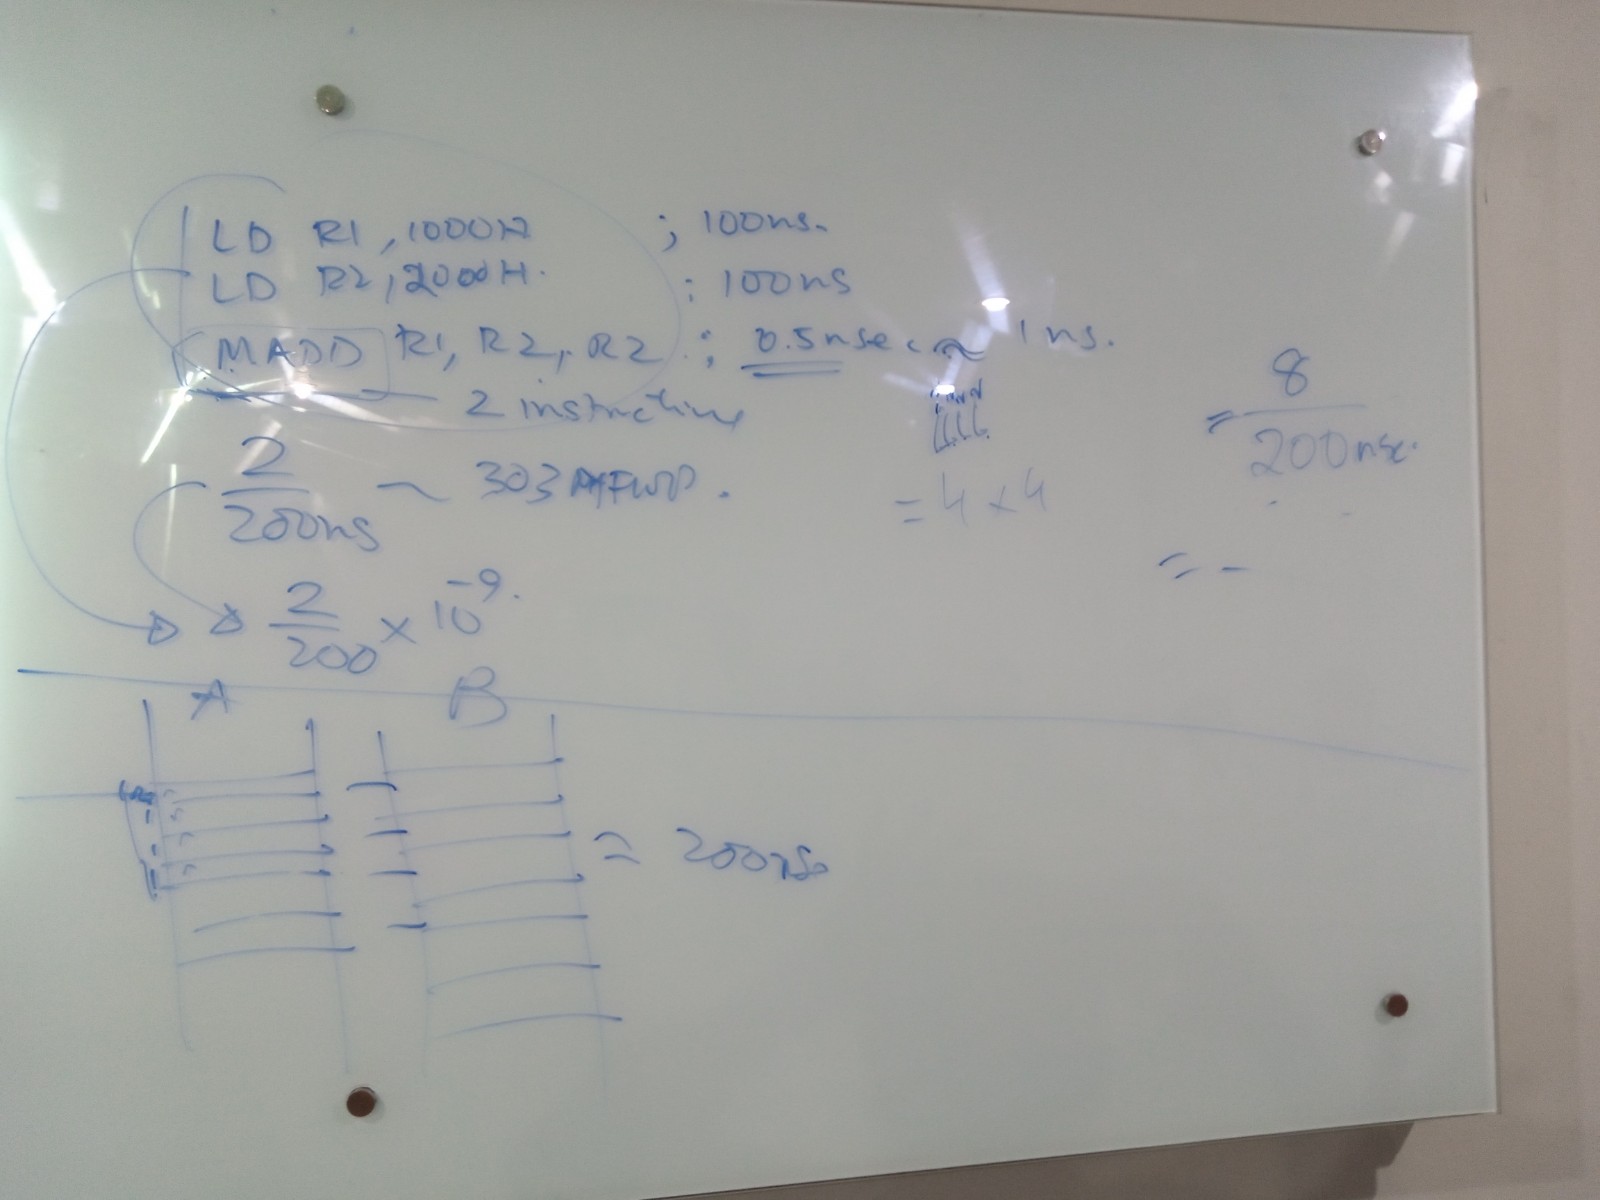 LD R1, 1000H ; 100ns.
LD R2, 2000H. ; 100ns
MADD R1, R2, R2 ; 0.5nsec ≈ 1ns.
2 instructions
2/200ns ~ 303
2/200 × 10^-9.
= 4 × 4
= 8/200nsec.
= -
A B
= 200ns